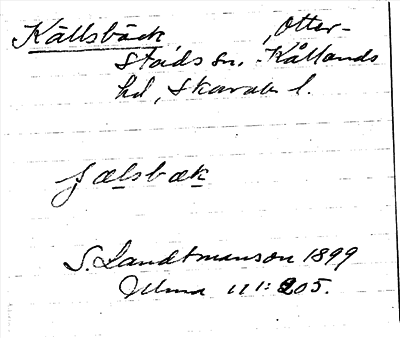 Källsbäck, Otter-
stads sn. Kållands
hd, Skarab. l.
ʃælsbæk
S. Landtmanson 1899
Ulma 111:205.